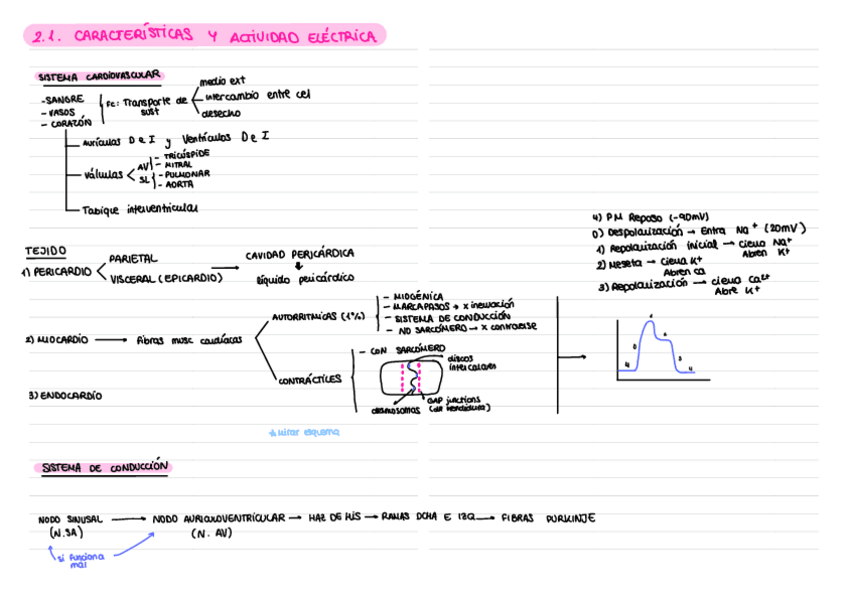 2.1. CARACTERÍSTICAS Y ACTIVIDAD ELÉCTRICA
SISTEMA CARDIOVASCULAR
-SANGRE
- VASOS
- CORAZÓN
Fc: Transporte de
sust
medio ext
intercambio entre cel
desecho
Aurículas D e I y Ventrículos D e I
Válvulas
AV
- TRICÚSPIDE
- MITRAL
SL
- PULMONAR
- AORTA
Tabique interventricular
TEJIDO
1) PERICARDIO
PARIETAL
VISCERAL (EPICARDIO)
CAVIDAD PERICÁRDICA
líquido pericárdico
2) MIOCARDIO
Fibras musc cardíacas
AUTORRITMICAS (1%)
- MIOGÉNICA
- MARCAPASOS → x inervación
- SISTEMA DE CONDUCCIÓN
- NO SARCÓMERO → x contraerse
CONTRÁCTILES
- CON SARCÓMERO
discos
intercalares
desmosomas
GAP junctions
(de hendidura)
3) ENDOCARDIO
4) PM Reposo (-90mV)
0) Despolarización → Entra Na+ (20mV)
1) Repolarización inicial → cierra Na+
Abren K+
2) Meseta → cierra K+
Abren ca
3) Repolarización → cierra Ca2+
Abre K+
4
0
1
2
3
4
* Mirar esquema
SISTEMA DE CONDUCCIÓN
NODO SINUSAL → NODO AURICULOVENTRICULAR → HAZ DE HIS → RAMAS DCHA E IZQ → FIBRAS PURKINJE
(N.SA)
(N. AV)
si funciona
mal